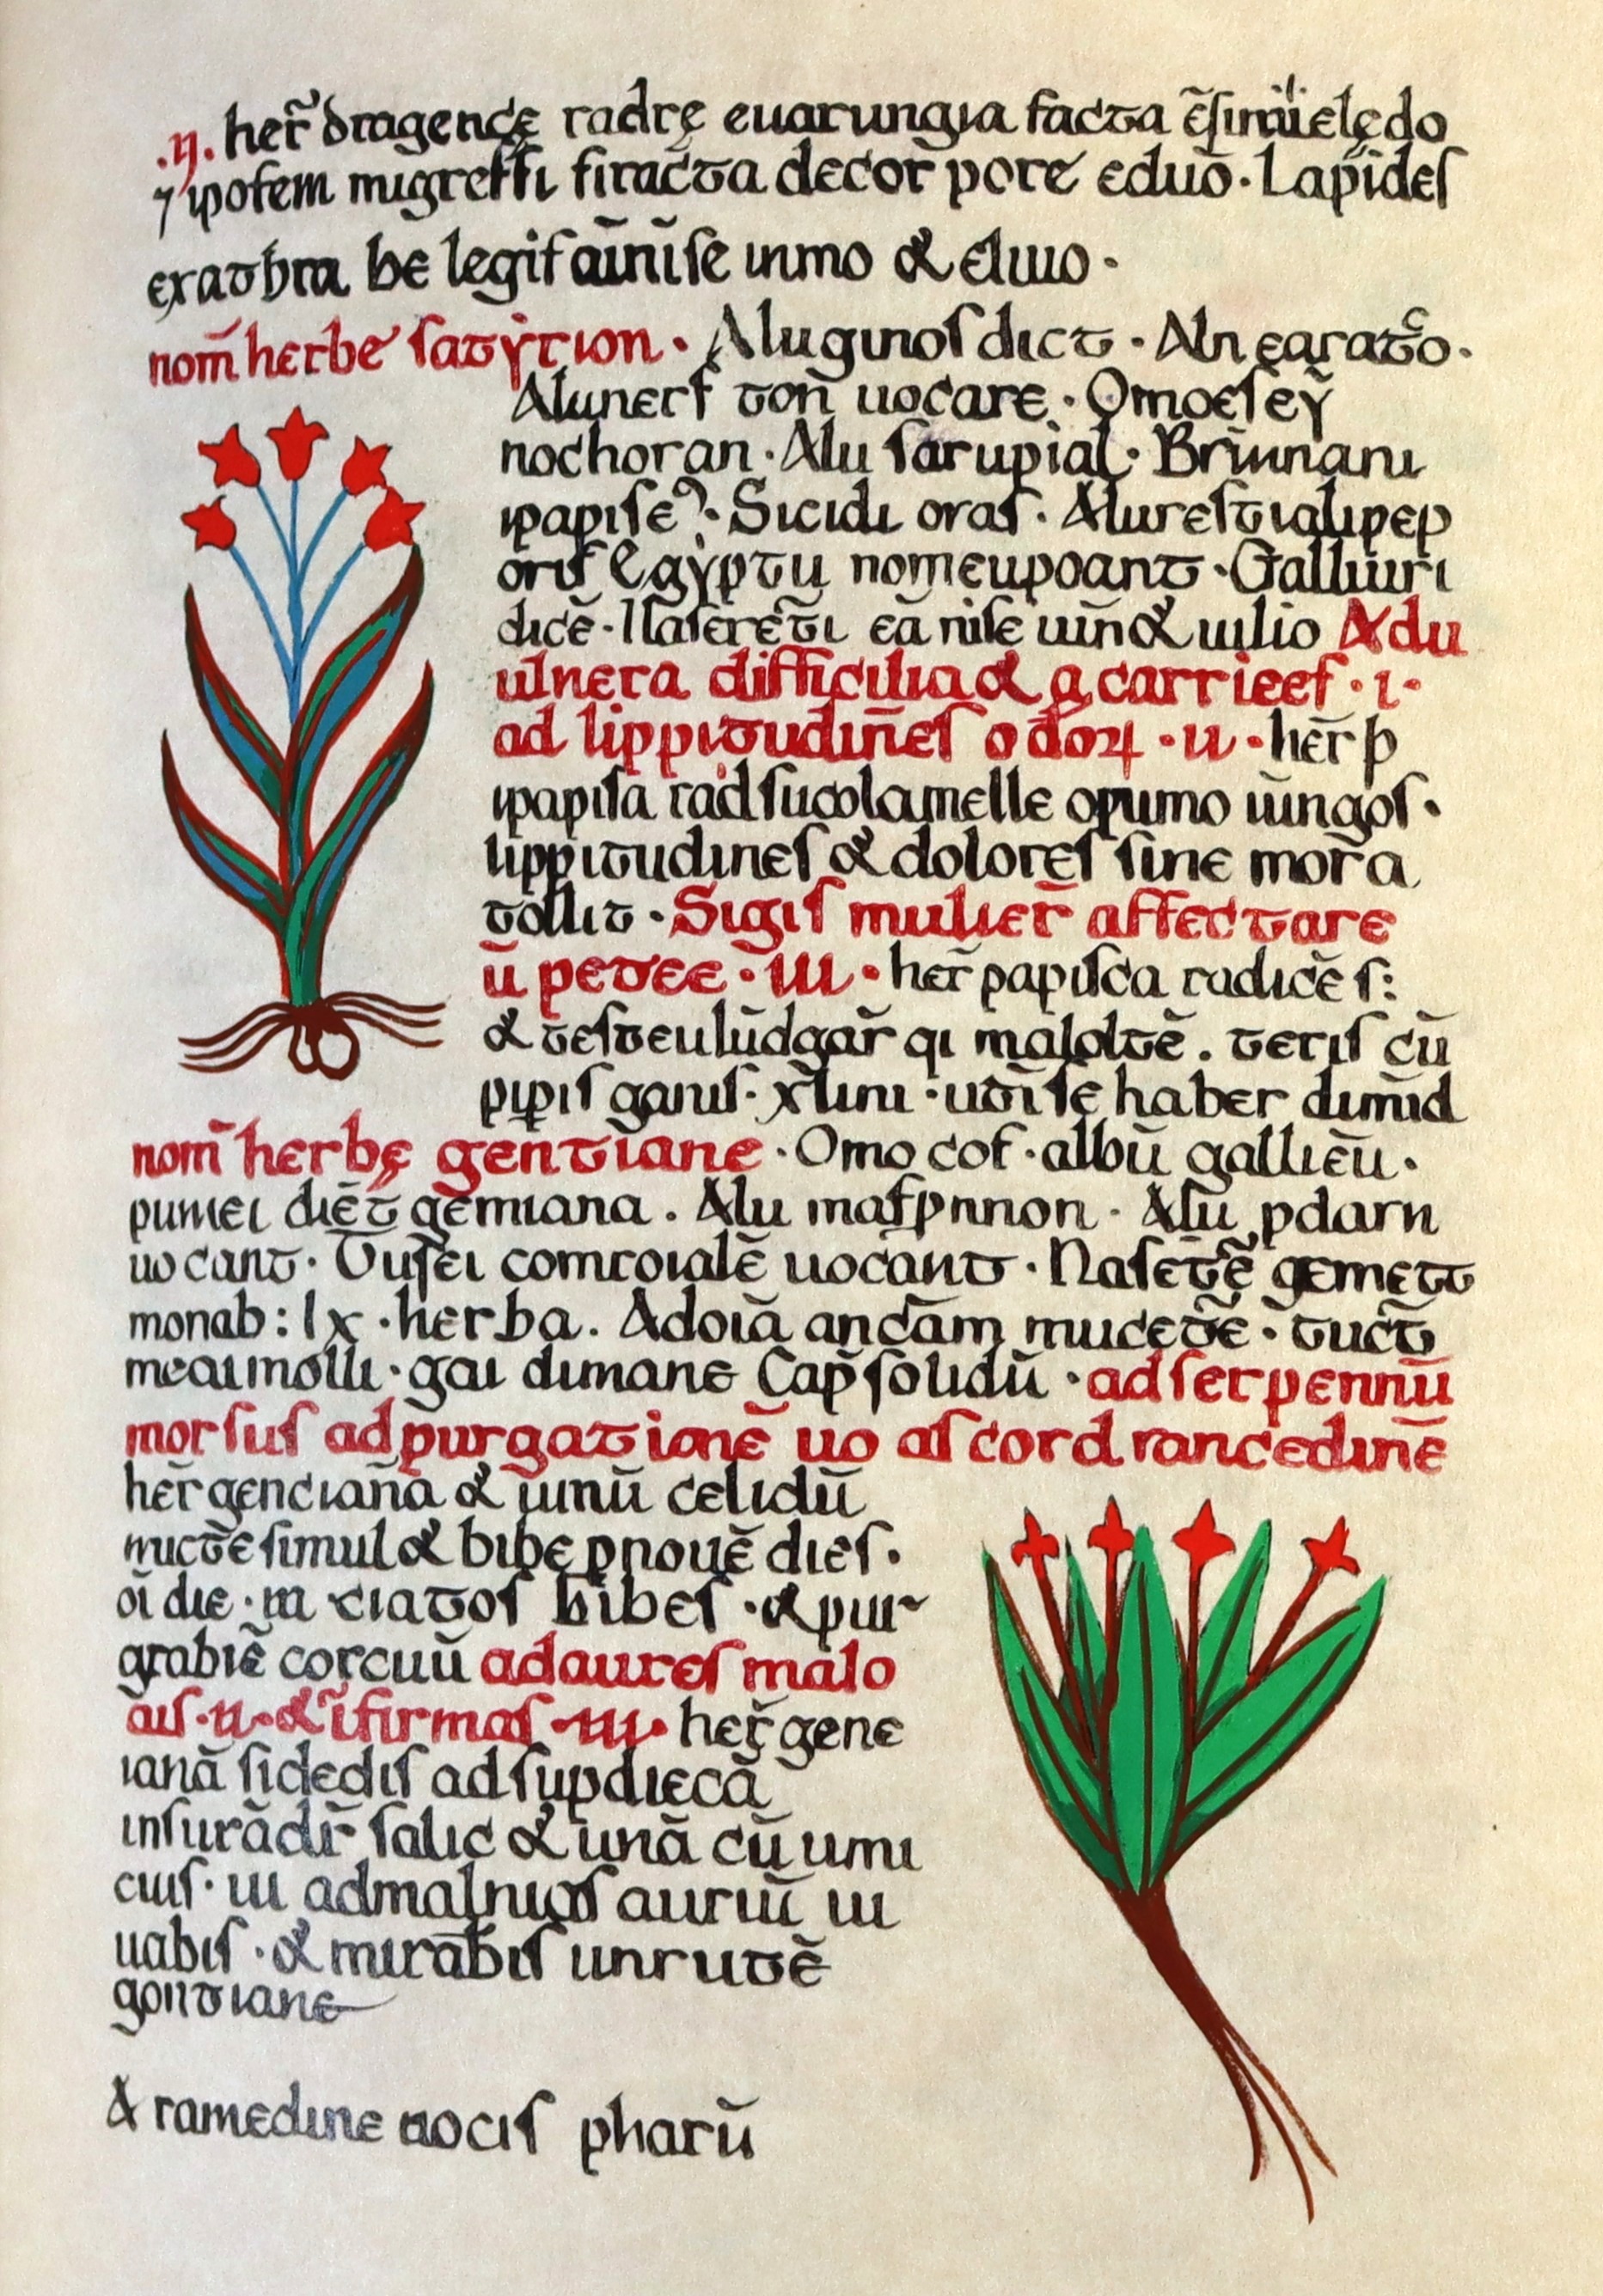 .ij. her̄ dragencę radrę euarungia facta ēsimielędo
⁊ ipofem migretfi firacta decor pore eduo · Lapides
exatbra be legif aīnīse inmo & eluio ·
nom̄ herbe satyrion · Aluginos dict · Aln earatō ·
Alunerf ton̄ uocare · Omoesey
nochoran · Alu sarupial · Brinnani
ipapise · Sicidi oras · Alurestialipep
oris Egyptu nomeupoant · Galliuiri
dicē · Nasereti eā nise uin̄ & uilio Adu
ulnera difficilia & a carrieef · i ·
ad lippitudines o doꝝ · ii · her̄ p
ipapisa rad sucolamelle opumo ūngos ·
lippitudines & dolores sine mora
tollit · Sigis mulier̄ affectare
ū petee · iii · her̄ papisca radicē s:
& testeulūdgar̄ qi maloltē . teris cū
pipis ganis · xliiii · uti se haber dimid
nom̄ herbę gentiane · Omo cof · albū gallieū ·
pumei diēt gemiana . Alu mafpnnon · Alu pdarn
uocant · Tusei comroialē uocant · Nasetē gemett
monab : lx · herba . Adoiā ancam mucetē · tuct
meaimolli · gai dimane Cap̄ solidū · ad serpennū
morsus ad purgationē uo as cord rancedinē
her̄ genciana & iunū celidū
mictē simul & bibe pnouē dies ·
oī die · iii ciatos bibes · & pur
grabiē corcuū adaures malo
ais · ii · & īfirmas · iii · her̄ gene
ianā sidedis ad supdiecā
insurādr̄ salic & unā cū umi
cuis · iii admalnias auriū iii
uabis · & mirabis unrutē
gontiane
& ramedine uocis pharū